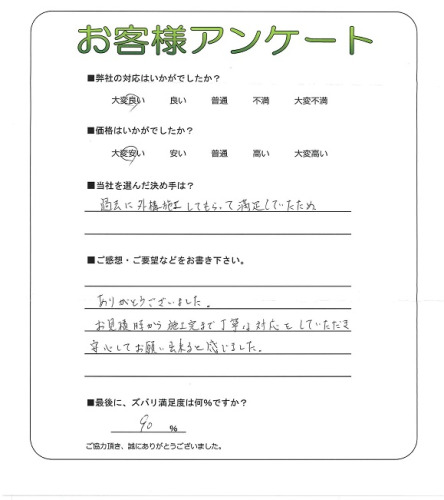 お客様アンケート
■弊社の対応はいかがでしたか？
大変良い 良い 普通 不満 大変不満
■価格はいかがでしたか？
大変安い 安い 普通 高い 大変高い
■当社を選んだ決め手は？
過去に外構施工してもらって満足していたため
■ご感想・ご要望などをお書き下さい。
ありがとうございました。
お見積時から施工完まで丁寧な対応をしていただき
安心してお願い出来ると感じました。
■最後に、ズバリ満足度は何%ですか？
90 %
ご協力頂き、誠にありがとうございました。